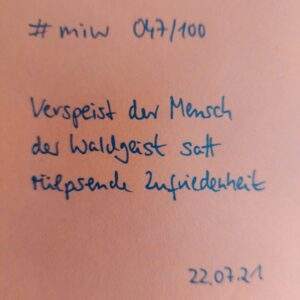 #miw 047/100
Verspeist der Mensch
der Waldgeist satt
rülpsende Zufriedenheit
22.07.21